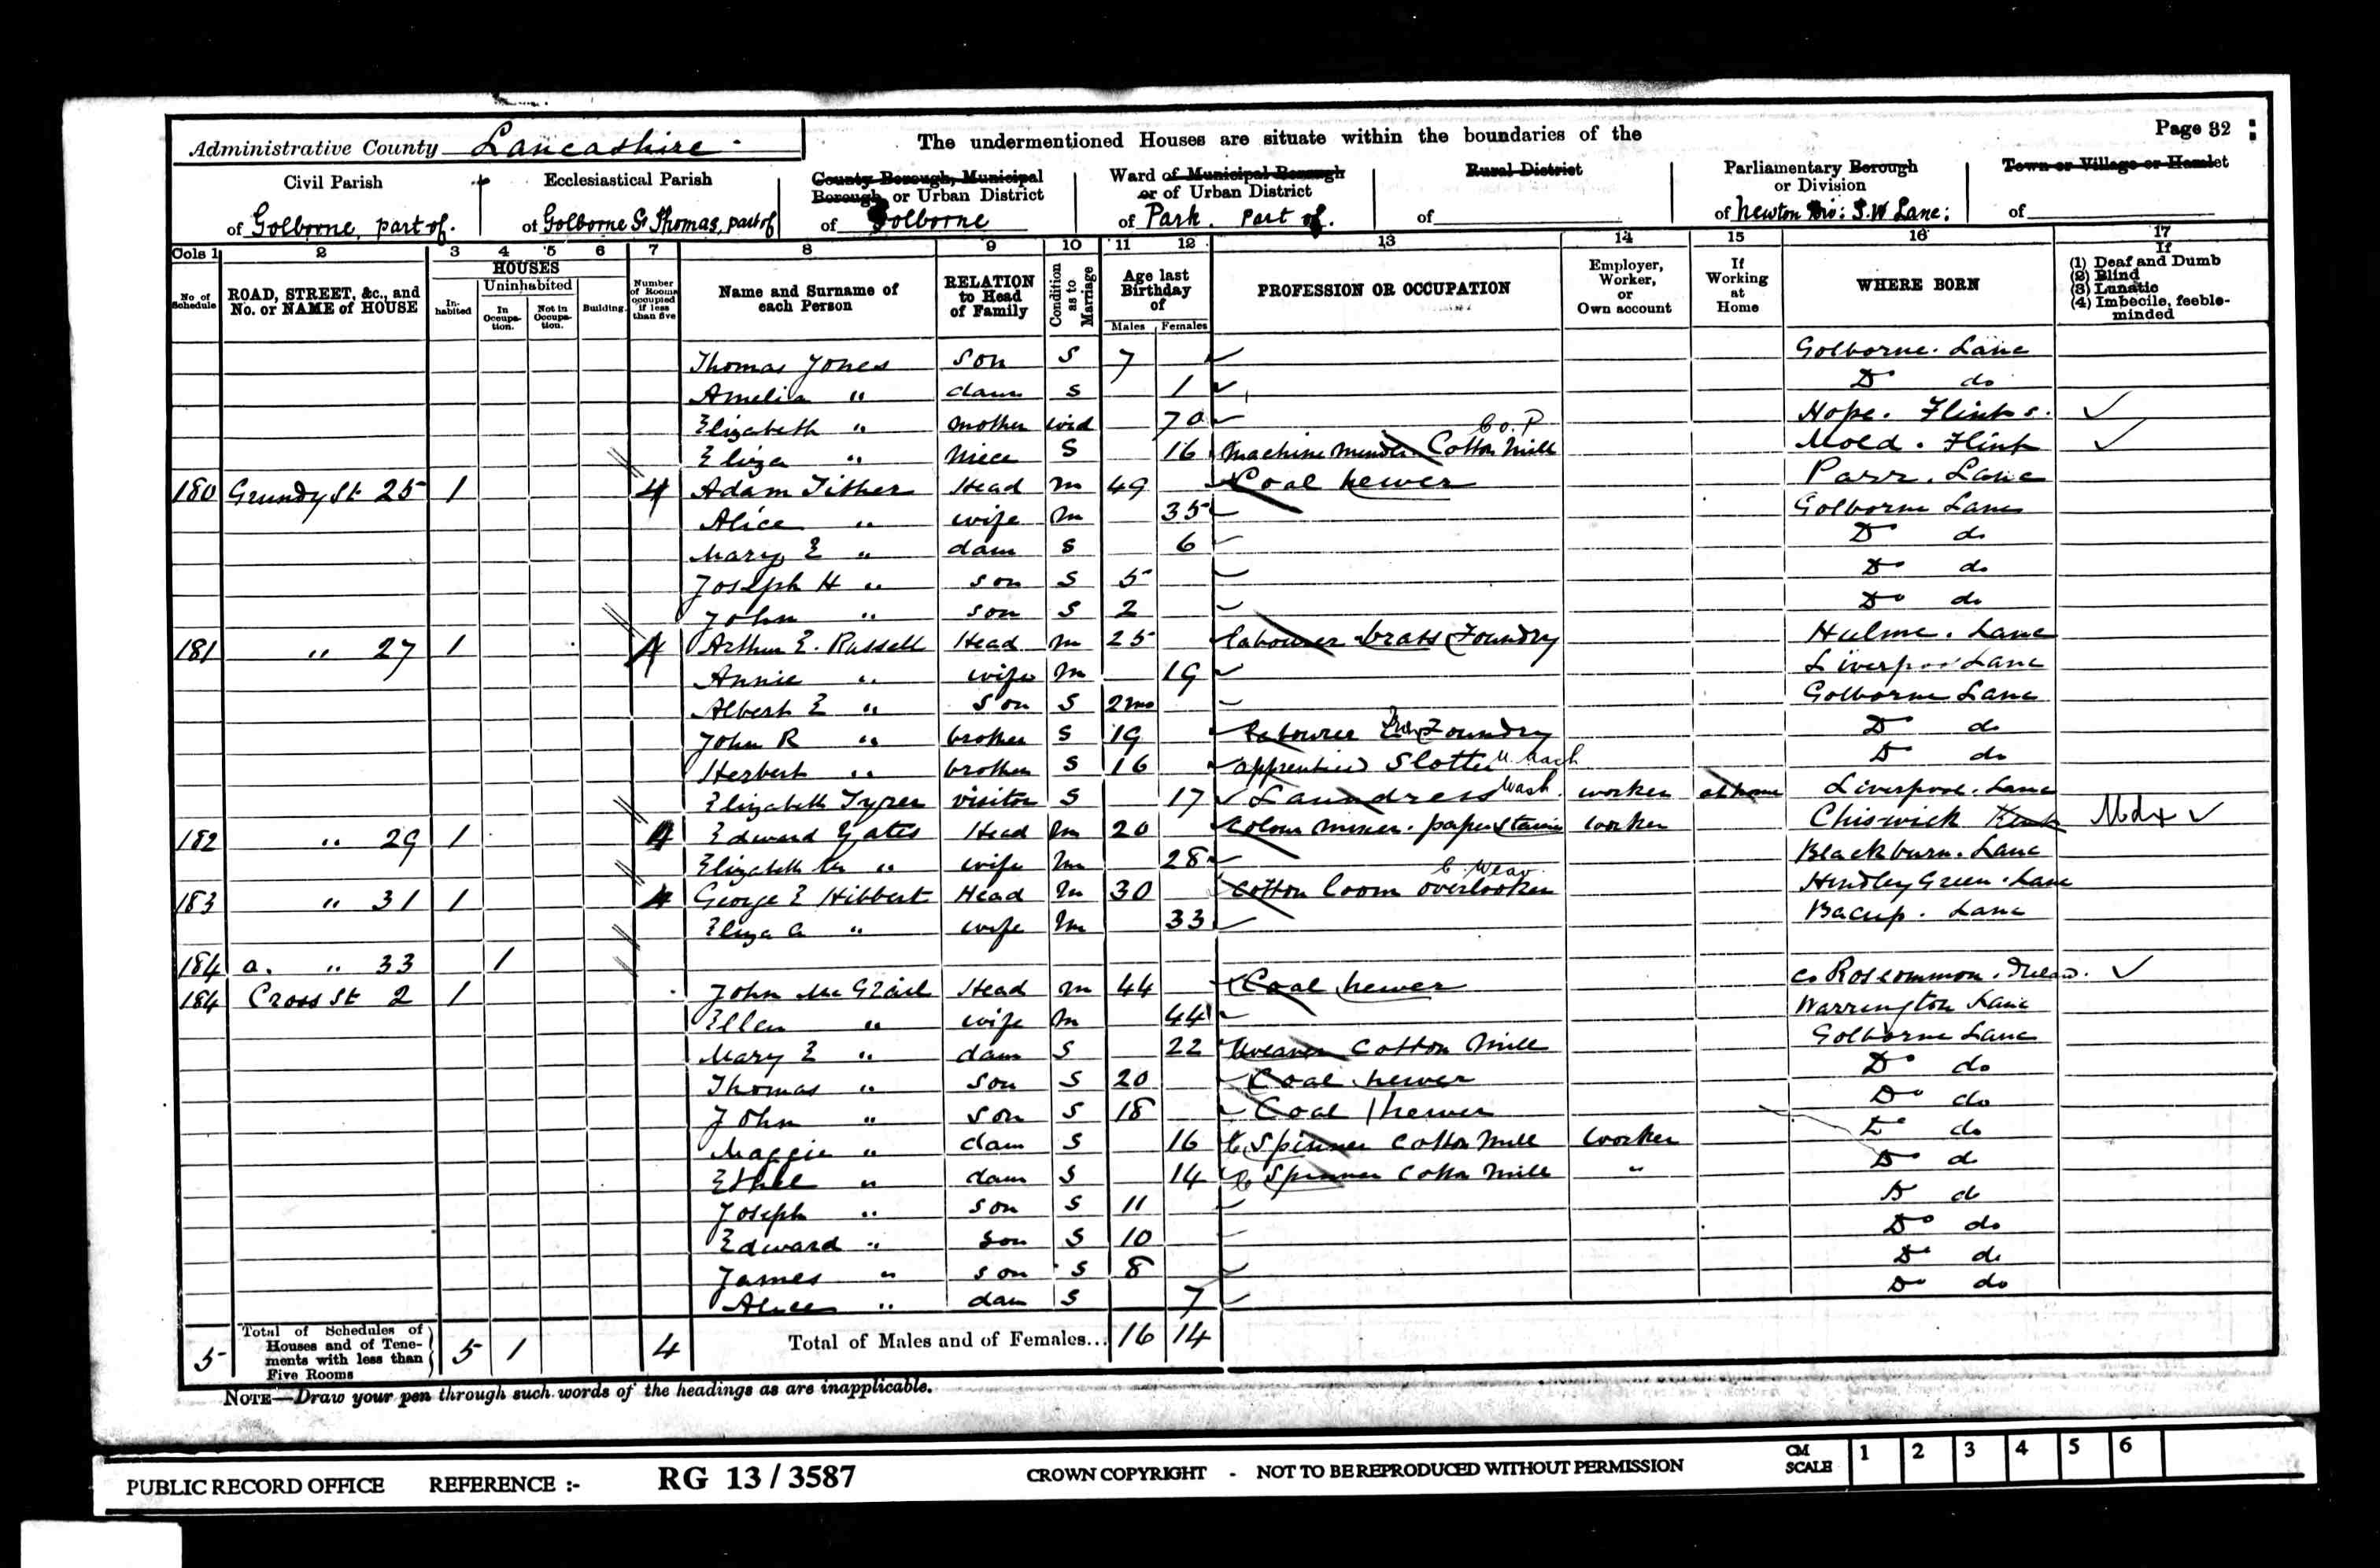 Page 32
Administrative County Lancashire. The undermentioned Houses are situate within the boundaries of the
Civil Parish of Golborne, part of.
Ecclesiastical Parish of Golborne St Thomas, part of
County Borough, Municipal Borough or Urban District of Golborne
Ward of Municipal Borough or of Urban District of Park. Part of.
Rural District of
Parliamentary Borough or Division of Newton Div: S.W Lanc:
Town or Village or Hamlet of
Cols 1 2 3 4 5 6 7 8 9 10 11 12 13 14 15 16 17
No of Schedule
ROAD, STREET, &c., and No. or NAME of HOUSE
HOUSES
Inhabited
Uninhabited
In Occupation.
Not in Occupation.
Building.
Number of Rooms occupied if less than five
Name and Surname of each Person
RELATION to Head of Family
Condition as to Marriage
Age last Birthday of
Males Females
PROFESSION OR OCCUPATION
Employer, Worker, or Own account
If Working at Home
WHERE BORN
If
(1) Deaf and Dumb
(2) Blind
(3) Lunatic
(4) Imbecile, feeble-minded
Thomas Jones Son S 7 Golborne. Lanc
Amelia " daur S 1 Do do
Elizabeth " Mother wid 70 Hope. Flints.
Eliza " Niece S 16 Machine Minder Cotton Mill Co. P Mold. Flint
180 Grundy St 25 1 4 Adam Tither Head M 49 Coal hewer Parr. Lanc
Alice " wife M 35 Golborne Lanc
Mary E " daur S 6 Do do
Joseph H " son S 5 Do do
John " son S 2 Do do
181 " 27 1 4 Arthur E. Russell Head M 25 labourer brass Foundry Hulme. Lanc
Annie " wife M 19 Liverpool Lanc
Albert E " Son S 2mo Golborne Lanc
John R " brother S 19 labourer Foundry Do do
Herbert " brother S 16 apprentice Slotter Mach Do do
Elizabeth Tyrer visitor S 17 Laundress Wash. worker at home Liverpool. Lanc
182 " 29 1 4 Edward Yates Head M 20 Colour mixer. paper Stainer worker Chiswick Kent Mdx
Elizabeth " wife M 28 Blackburn. Lanc
183 " 31 1 4 George E Hibbert Head M 30 Cotton loom overlooker C. Weav. Hindley Green. Lanc
Eliza A " wife M 33 Bacup. Lanc
184 a. " 33 1
184 Cross St 2 1 John Mc Grail Head M 44 Coal hewer Co Roscommon. Ireland.
Ellen " wife M 44 Warrington Lanc
Mary E " daur S 22 Weaver Cotton Mill Golborne Lanc
Thomas " Son S 20 Coal hewer Do do
John " Son S 18 Coal hewer Do do
Maggie " daur S 16 C Spinner Cotton Mill Worker Do do
Ethel " daur S 14 C Spinner Cotton Mill " Do do
Joseph " son S 11 Do do
Edward " Son S 10 Do do
James " son S 8 Do do
Alice " daur S 7 Do do
5 Total of Schedules of Houses and of Tenements with less than Five Rooms 5 1 4 Total of Males and of Females... 16 14
NOTE—Draw your pen through such words of the headings as are inapplicable.
PUBLIC RECORD OFFICE REFERENCE :- RG 13 / 3587 CROWN COPYRIGHT - NOT TO BE REPRODUCED WITHOUT PERMISSION CM SCALE 1 2 3 4 5 6